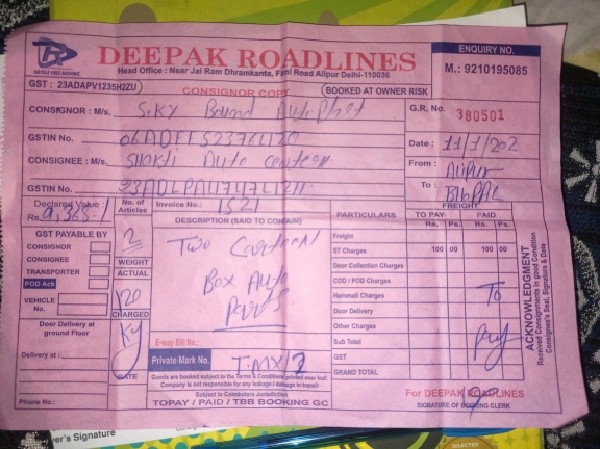 DEEPAK ROADLINES
Head Office : Near Jai Ram Dharamkanta, Firni Road Alipur Delhi-110036
ENQUIRY NO.
M.: 9210195085
GST : 23ADAPV1235H2ZU
CONSIGNOR COPY
BOOKED AT OWNER RISK
CONSIGNOR : M/s.
G.R. No. 380501
GSTIN No.
Date : 11/1/202
CONSIGNEE : M/s. Shakti Auto
From : Alipur
GSTIN No.
To : BHOPAL
Declared Value
Rs. 9,365-/
No. of Articles
2
Invoice No.: 1521
DESCRIPTION (SAID TO CONTAIN)
PARTICULARS
FREIGHT
TO PAY
PAID
Rs. Ps. Rs. Ps.
GST PAYABLE BY
CONSIGNOR
CONSIGNEE
TRANSPORTER
POD Ack
VEHICLE No.
WEIGHT
ACTUAL
120
CHARGED
Kg
Two
Box Auto
Parts
Freight
ST Charges 100 00 100 00
Door Collection Charges
COD / POD Charges
Hammali Charges
Door Delivery
Other Charges
Sub Total
GST
GRAND TOTAL
To
Pay
ACKNOWLEDGMENT
Received Consignments in good Condition
Consignee's Seal, Signature & Date
Door Delivery at ground Floor
Delivery at :
Phone No.:
E-way Bill No.:
Private Mark No.
Goods are booked subject to the Terms & Conditions printed over leaf.
Company is not responsible for any leakage / damage in transit
Subject to Coimbatore Jurisdiction
TOPAY / PAID / TBB BOOKING GC
For DEEPAK ROADLINES
SIGNATURE OF BOOKING CLERK
ver's Signature